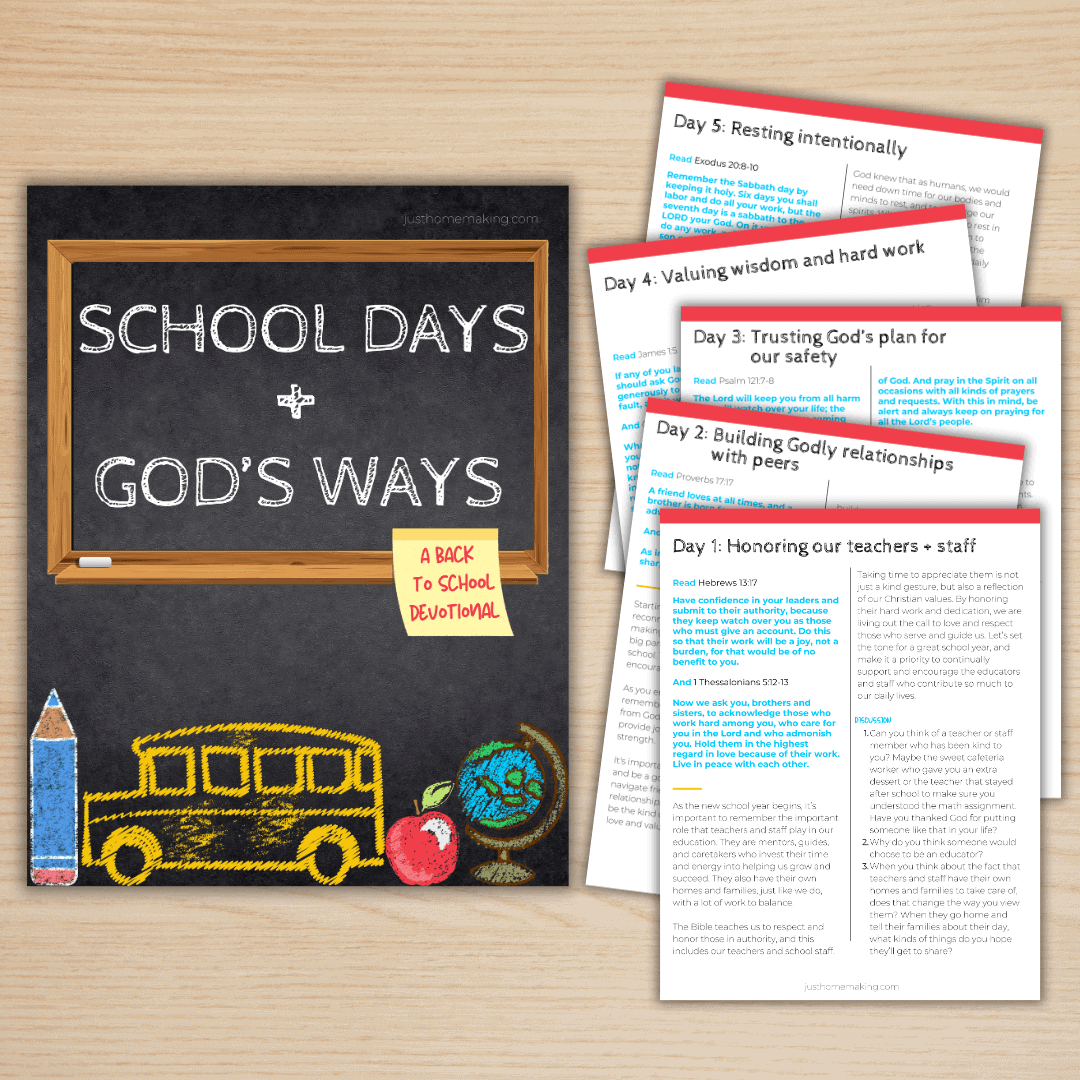 justhomemaking.com
SCHOOL DAYS
+
GOD'S WAYS
A BACK
TO SCHOOL
DEVOTIONAL
Day 5: Resting intentionally
Read Exodus 20:8-10
Remember the Sabbath day by
keeping it holy. Six days you shall
labor and do all your work, but the
seventh day is a sabbath to the
LORD your God. On it
do any work
God knew that as humans, we would
need down time for our bodies and
minds to rest, and to
Day 4: Valuing wisdom and hard work
Read James 1:5
If any of you
should ask
generously to
fault,
And
Day 3: Trusting God's plan for
our safety
Read Psalm 121:7-8
The Lord will keep you from all harm
watch over your life; the
of God. And pray in the Spirit on all
occasions with all kinds of prayers
and requests. With this in mind, be
alert and always keep on praying for
all the Lord's people.
Day 2: Building Godly relationships
with peers
Read Proverbs 17:17
A friend loves at all times, and a
brother is born
As
big
school
As you
from God
strength.
It's
and be a
navigate
be the kind
love and
Day 1: Honoring our teachers + staff
Read Hebrews 13:17
Have confidence in your leaders and
submit to their authority, because
they keep watch over you as those
who must give an account. Do this
so that their work will be a joy, not a
burden, for that would be of no
benefit to you.
And 1 Thessalonians 5:12-13
Now we ask you, brothers and
sisters, to acknowledge those who
work hard among you, who care for
you in the Lord and who admonish
you. Hold them in the highest
regard in love because of their work.
Live in peace with each other.
As the new school year begins, it's
important to remember the important
role that teachers and staff play in our
education. They are mentors, guides,
and caretakers who invest their time
and energy into helping us grow and
succeed. They also have their own
homes and families, just like we do,
with a lot of work to balance.
The Bible teaches us to respect and
honor those in authority, and this
includes our teachers and school staff.
Taking time to appreciate them is not
just a kind gesture, but also a reflection
of our Christian values. By honoring
their hard work and dedication, we are
living out the call to love and respect
those who serve and guide us. Let's set
the tone for a great school year, and
make it a priority to continually
support and encourage the educators
and staff who contribute so much to
our daily lives.
DISCUSSION
1. Can you think of a teacher or staff
member who has been kind to
you? Maybe the sweet cafeteria
worker who gave you an extra
dessert or the teacher that stayed
after school to make sure you
understood the math assignment.
Have you thanked God for putting
someone like that in your life?
2. Why do you think someone would
choose to be an educator?
3. When you think about the fact that
teachers and staff have their own
homes and families to take care of,
does that change the way you view
them? When they go home and
tell their families about their day,
what kinds of things do you hope
they'll get to share?
justhomemaking.com